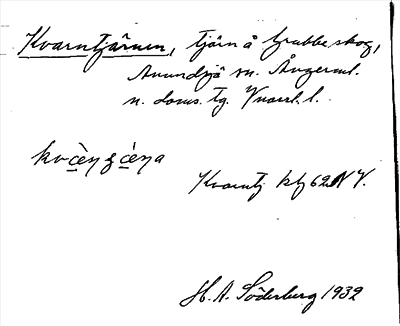 Kvarntjärnen, tjärn å Grubbe skog,
Anundsjö sn. Ångerml.
n. doms. tg. Vnorrl. l.
Kvarntj. kbl 62 NV.
H. A. Söderberg 1932